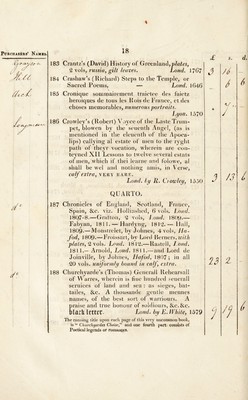 18
PURCHASERS' NAMES.
£ s. d.
183 Crantz's (David) History of Greenland, plates,
2 vols, russia, gilt leaves. Lond. 1767
3 16
Hill
184 Crashaw's (Richard) Steps to the Temple, or
Sacred Poems, — Lond. 1646
6 6
185 Cronique sommairement traictee des faictz
heroiques de tous les Rois de France, et des
choses memorables, numerous portraits.
Lyon. 1570
7
Longman
186 Crowley's (Robert) Voyce of the Laste Trum-
pet, blowen by the seventh Angel, (as is
mentioned in the eleuenth of the Apoca-
lips) callying al estate of men to the ryght
path of theyr vocation, wherein are con-
teyned XII Lessons to twelve several estats
of men, which if this learne and folowe, al
shall be wel and nothing amis, in Verse,
calf extra, VERY RARE.
Lond. by R. Crowley, 1550
3 13 6
QUARTO.
do
187 Chronicles of England, Scotland, France,
Spain, &c. viz. Hollinshed, 6 vols. Lond.
1807-8.—Grafton, 2 vols, Lond. 1809.—
Fabyan, 1811. — Hardyng, 1812. — Hall,
1809.—Monstrelet, by Johnes, 4 vols, Ha-
fod, 1809.—Froissart, by Lord Berners, with
plates, 2 vols, Lond. 1812.—Rastell, Lond.
1811.— Arnold, Lond. 1811.—and Lord de
Joinville, by Johnes, Hafod, 1807; in all
20 vols. uniformly bound in calf, extra.
23 2
do
189 Churchyarde's (Thomas) Generall Rehearsall
of Warres, wherein is five hundred severall
services of land and sea: as sieges, bat-
tailes, &c. A thousande gentle mennes
names, of the best sort of warriours. A
praise and true honour of soldiours, &c. &c.
black letter. Lond. by E. White, 1579
9 19 6
The running title upon each page of this very uncommon book,
is "Churchyardes Choise," and one fourth part consists of
Poetical legends or romances.